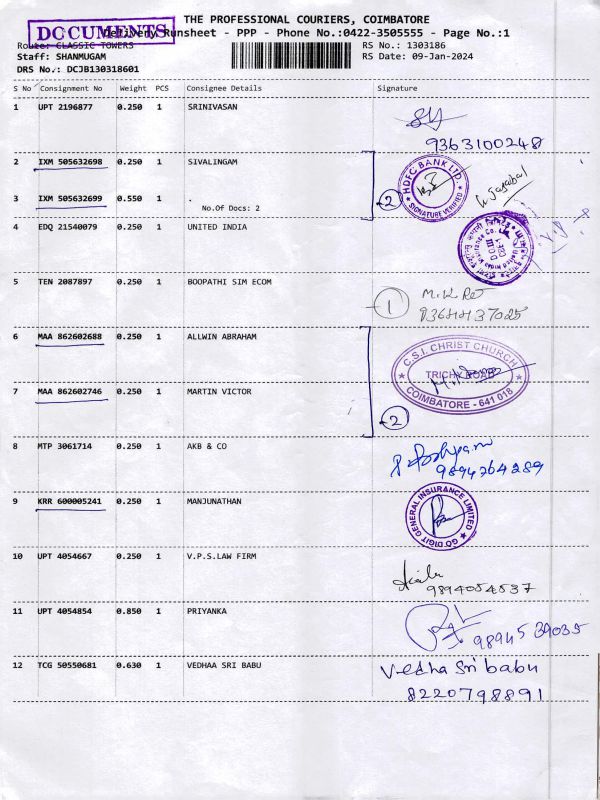 THE PROFESSIONAL COURIERS, COIMBATORE
DOCUMENTS
Delivery Runsheet - PPP - Phone No.:0422-3505555 - Page No.:1
Route: CLASSIC TOWERS
RS No.: 1303186
Staff: SHANMUGAM
RS Date: 09-Jan-2024
DRS No.: DCJB130318601
S No Consignment No Weight PCS Consignee Details Signature
1 UPT 2196877 0.250 1 SRINIVASAN
9363100248
2 IXM 505632698 0.250 1 SIVALINGAM
HDFC BANK LTD.
SIGNATURE VERIFIED
3 IXM 505632699 0.550 1 .
2
No.Of Docs: 2
4 EDQ 21540079 0.250 1 UNITED INDIA
5 TEN 2087897 0.250 1 BOOPATHI SIM ECOM
1
6 MAA 862602688 0.250 1 ALLWIN ABRAHAM
C.S.I. CHRIST CHURCH
COIMBATORE - 641 018
7 MAA 862602746 0.250 1 MARTIN VICTOR
2
8 MTP 3061714 0.250 1 AKB & CO
9894264289
9 KRR 600005241 0.250 1 MANJUNATHAN
GO DIGIT GENERAL INSURANCE LIMITED
10 UPT 4054667 0.250 1 V.P.S.LAW FIRM
9894054537
11 UPT 4054854 0.850 1 PRIYANKA
98945 39035
12 TCG 50550681 0.630 1 VEDHAA SRI BABU
Vedha Sri babu
8220798891